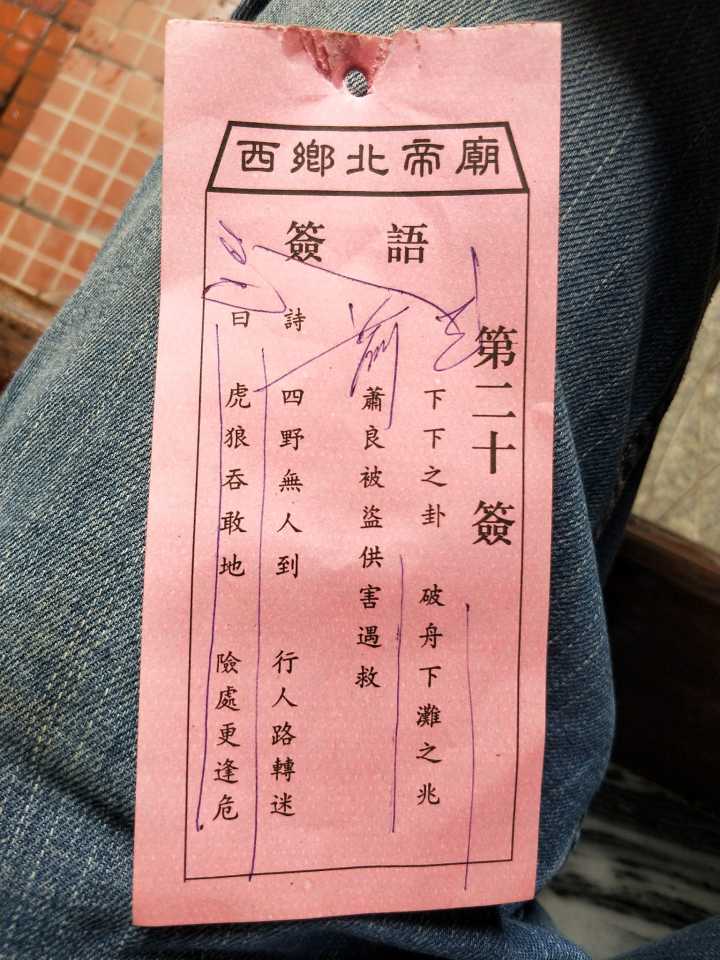 西鄉北帝廟
簽語
第二十簽
下下之卦 破舟下灘之兆
蕭良被盜供害遇救
詩曰
四野無人到 行人路轉迷
虎狼吞敢地 險處更逢危